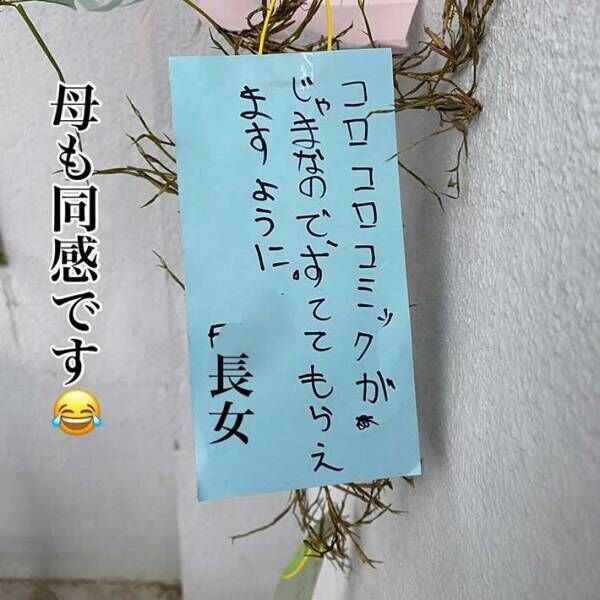 母も同感です😂
コロコロコミックが
じゃまなので、すててもらえ
ますように
F
長女